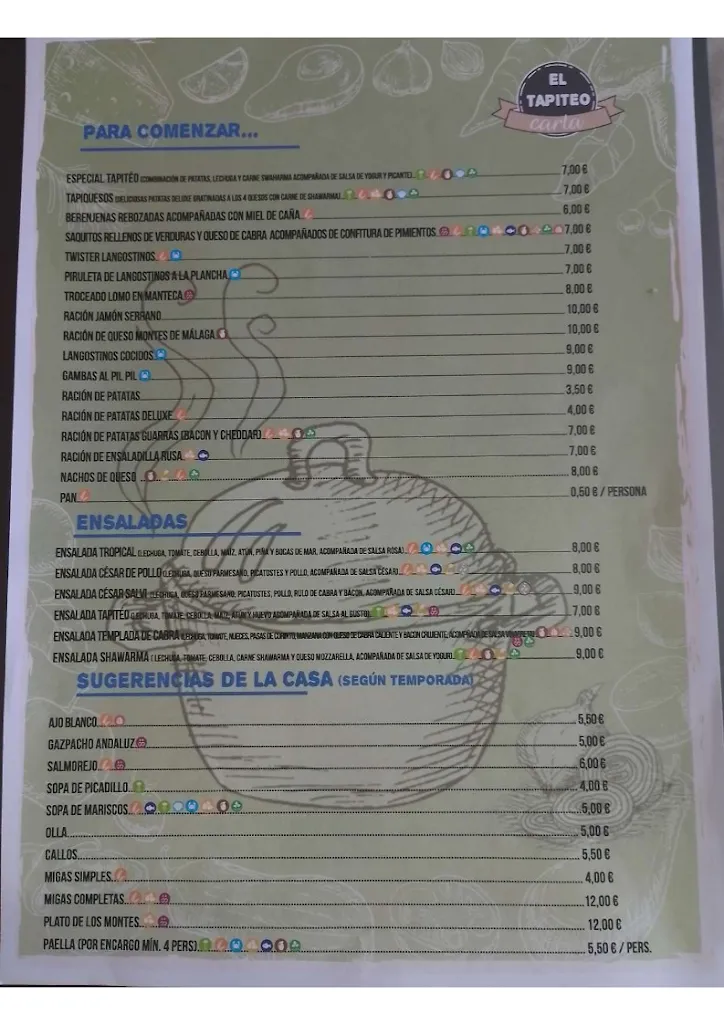 EL
TAPITEO
carta
PARA COMENZAR...
ESPECIAL TAPITÉO (COMBINACIÓN DE PATATAS, LECHUGA Y CARNE SHAWARMA ACOMPAÑADA DE SALSA DE YOGUR Y PICANTE) 7,00 €
TAPIQUESOS (DELICIOSAS PATATAS DELUXE GRATINADAS A LOS 4 QUESOS CON CARNE DE SHAWARMA) 7,00 €
BERENJENAS REBOZADAS ACOMPAÑADAS CON MIEL DE CAÑA 6,00 €
SAQUITOS RELLENOS DE VERDURAS Y QUESO DE CABRA ACOMPAÑADOS DE CONFITURA DE PIMIENTOS 7,00 €
TWISTER LANGOSTINOS 7,00 €
PIRULETA DE LANGOSTINOS A LA PLANCHA 7,00 €
TROCEADO LOMO EN MANTECA 8,00 €
RACIÓN JAMÓN SERRANO 10,00 €
RACIÓN DE QUESO MONTES DE MÁLAGA 10,00 €
LANGOSTINOS COCIDOS 9,00 €
GAMBAS AL PIL PIL 9,00 €
RACIÓN DE PATATAS 3,50 €
RACIÓN DE PATATAS DELUXE 4,00 €
RACIÓN DE PATATAS GUARRAS (BACON Y CHEDDAR) 7,00 €
RACIÓN DE ENSALADILLA RUSA 7,00 €
NACHOS DE QUESO 8,00 €
PAN 0,50 € / PERSONA
ENSALADAS
ENSALADA TROPICAL (LECHUGA, TOMATE, CEBOLLA, MAÍZ, ATÚN, PIÑA Y BOCAS DE MAR, ACOMPAÑADA DE SALSA ROSA) 8,00 €
ENSALADA CÉSAR DE POLLO (LECHUGA, QUESO PARMESANO, PICATOSTES Y POLLO, ACOMPAÑADA DE SALSA CÉSAR) 8,00 €
ENSALADA CÉSAR SALVI (LECHUGA, QUESO PARMESANO, PICATOSTES, POLLO, RULO DE CABRA Y BACON, ACOMPAÑADA DE SALSA CÉSAR) 9,00 €
ENSALADA TAPITEO (LECHUGA, TOMATE, CEBOLLA, MAÍZ, ATÚN Y HUEVO ACOMPAÑADA DE SALSA AL GUSTO) 7,00 €
ENSALADA TEMPLADA DE CABRA (LECHUGA, TOMATE, NUECES, PASAS DE CORINTO, MANZANA CON QUESO DE CABRA CALIENTE Y BACON CRUJIENTE, ACOMPAÑADA DE SALSA 9,00 €
ENSALADA SHAWARMA (LECHUGA, TOMATE, CEBOLLA, CARNE SHAWARMA Y QUESO MOZZARELLA, ACOMPAÑADA DE SALSA DE YOGUR) 9,00 €
SUGERENCIAS DE LA CASA (SEGÚN TEMPORADA)
AJO BLANCO 5,50 €
GAZPACHO ANDALUZ 5,00 €
SALMOREJO 6,00 €
SOPA DE PICADILLO 4,00 €
SOPA DE MARISCOS 5,00 €
OLLA 5,00 €
CALLOS 5,50 €
MIGAS SIMPLES 4,00 €
MIGAS COMPLETAS 12,00 €
PLATO DE LOS MONTES 12,00 €
PAELLA (POR ENCARGO MÍN. 4 PERS) 5,50 € / PERS.